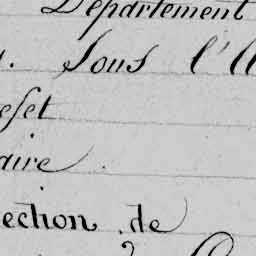 Département
. Sous l'
efet
aire.
ection de